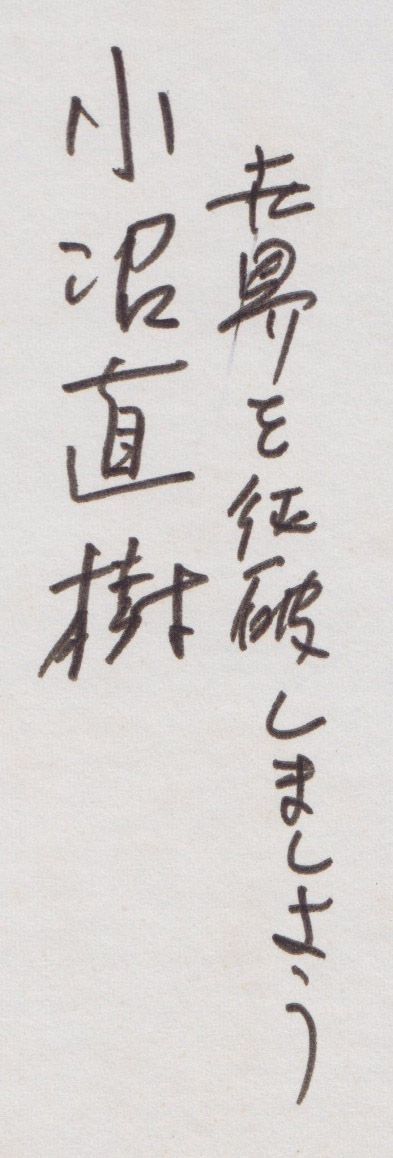 世界を征破しましょう
小沼直樹